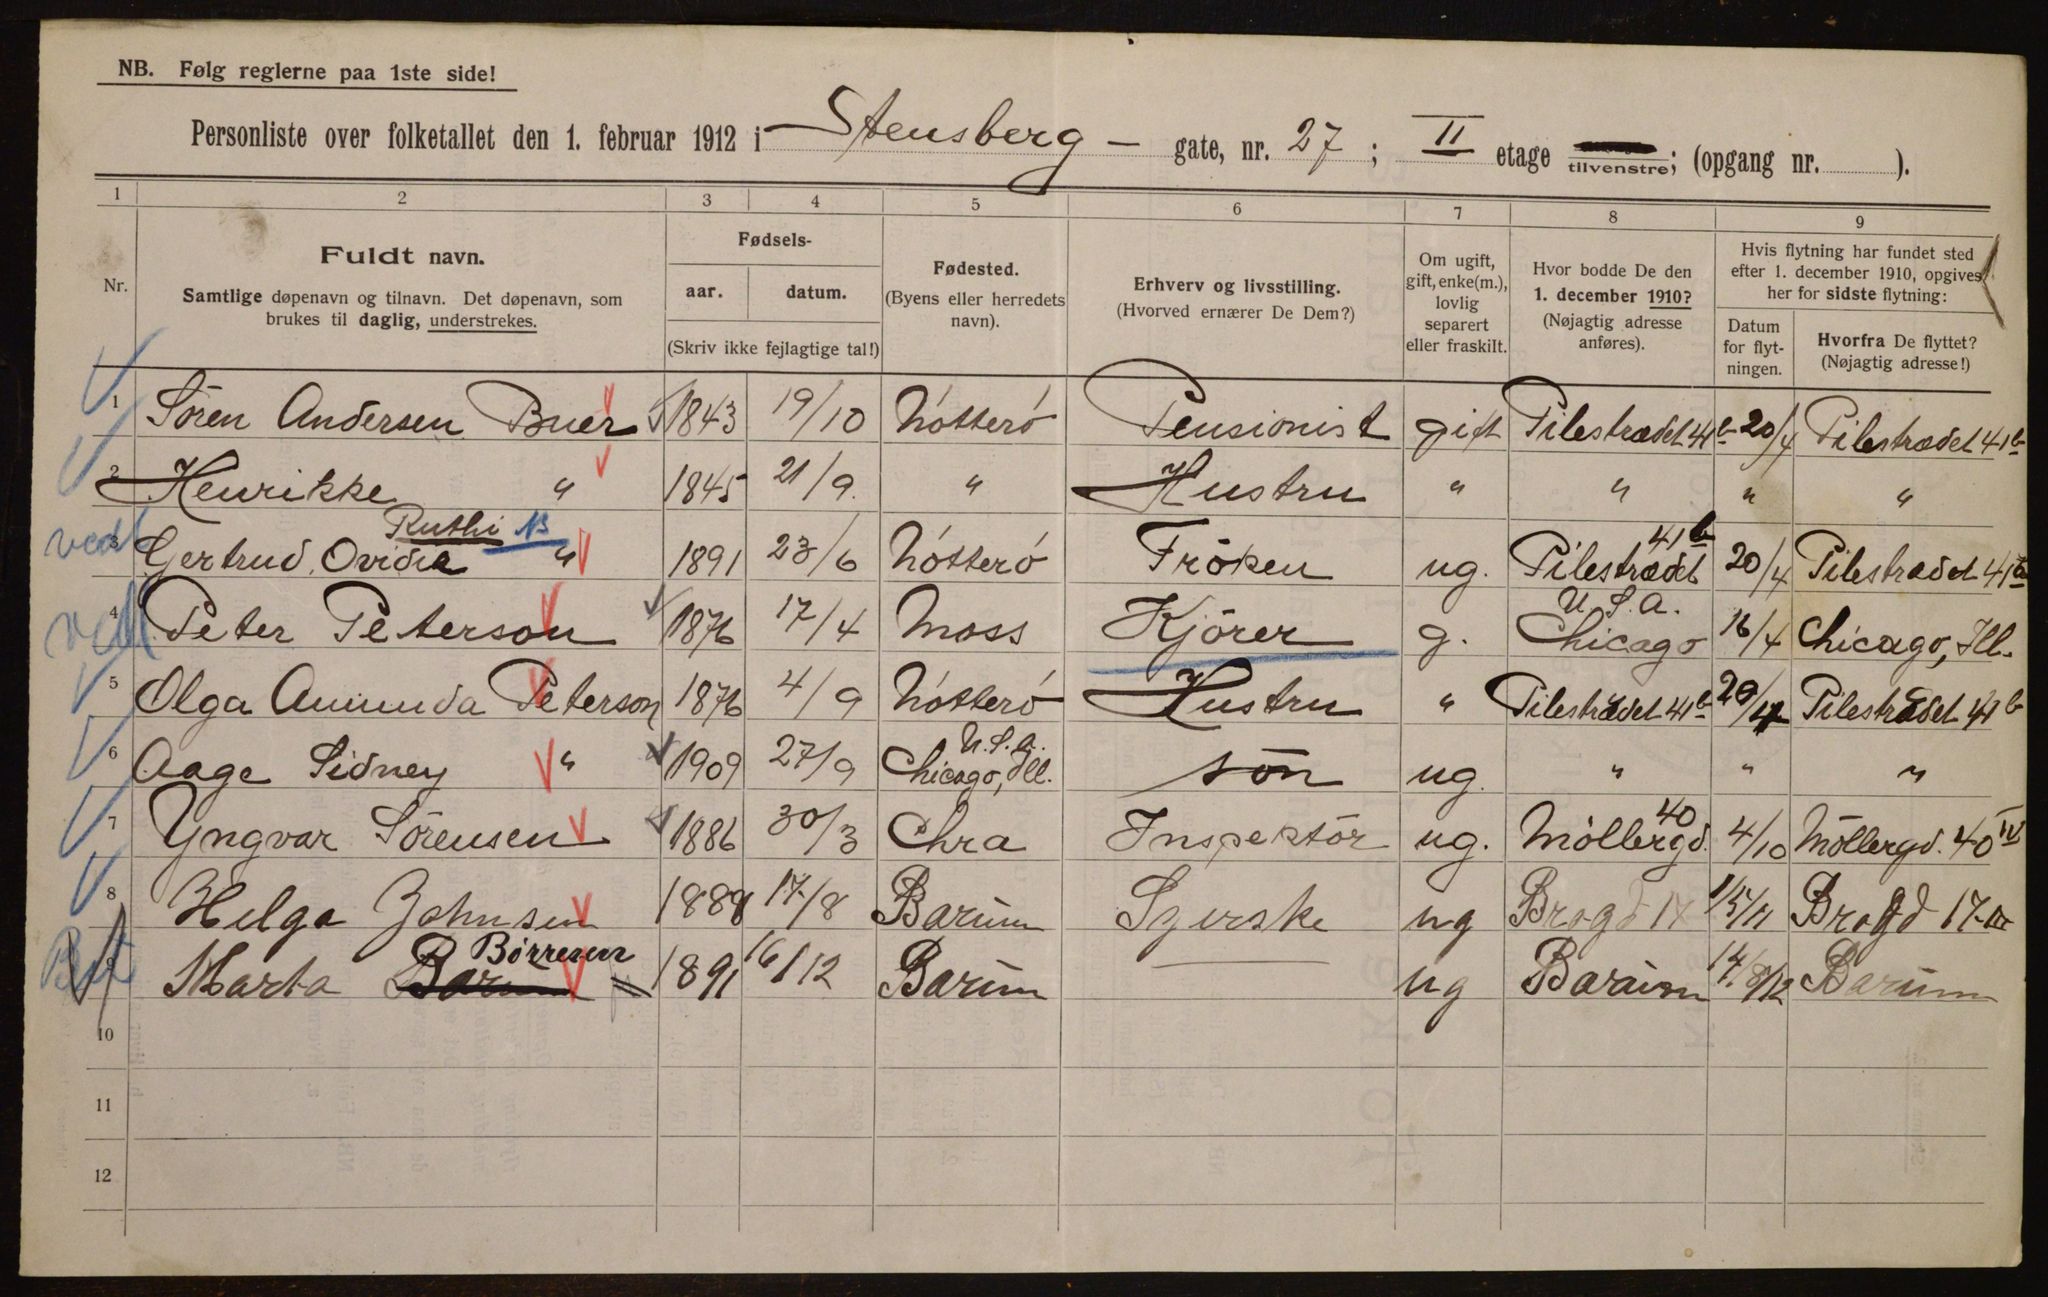 NB. Følg reglerne paa 1ste side!
Personliste over folketallet den 1. februar 1912 i Stensberg - gate, nr. 27 ; II etage tilvenstre; (opgang nr. ).
1 2 3 4 5 6 7 8 9
Nr. Fuldt navn. Samtlige døpenavn og tilnavn. Det døpenavn, som brukes til daglig, understrekes.
Fødsels- aar. datum. (Skriv ikke fejlagtige tal!)
Fødested. (Byens eller herredets navn).
Erhverv og livsstilling. (Hvorved ernærer De Dem?)
Om ugift, gift, enke(m.), lovlig separert eller fraskilt.
Hvor bodde De den 1. december 1910? (Nøjagtig adresse anføres).
Hvis flytning har fundet sted efter 1. december 1910, opgives her for sidste flytning:
Datum for flyt- ningen.
Hvorfra De flyttet? (Nøjagtig adresse!)
1 Sören Andersen Buer 1843 19/10 Nötterö Pensionist gift Pilestrædet 41b 20/4 Pilestrædet 41b
2 Henrikke " 1845 21/9. " Hustru " " " "
3 Gertrud Ovidia Ruthi " 1891 23/6 Nötterö Fröken ug. Pilestrædet 41b 20/4 Pilestrædet 41b
4 Peter Peterson 1876 17/4 Moss Kjörer g. Chicago U.S.A. 16/4 Chicago, Ill.
5 Olga Amunda Peterson 1876 4/9 Nötterö Hustru " Pilestrædet 41b 20/4 Pilestrædet 41b
6 Aage Sidney " 1909 27/9 Chicago, Ill. U.S.A. sön ug. " " "
7 Yngvar Sörensen 1886 30/3 Chra Inspektör ug. Möllergd. 40 4/10 Möllergd. 40 IV
8 Helga Johnsen 1888 17/8 Barüm Syerske ug Brogd 17 1/5/11 Brogd 17 III
9 Marta Børresen 1891 16/12 Barüm ug Barüm 14/8/12 Barüm
10
11
12